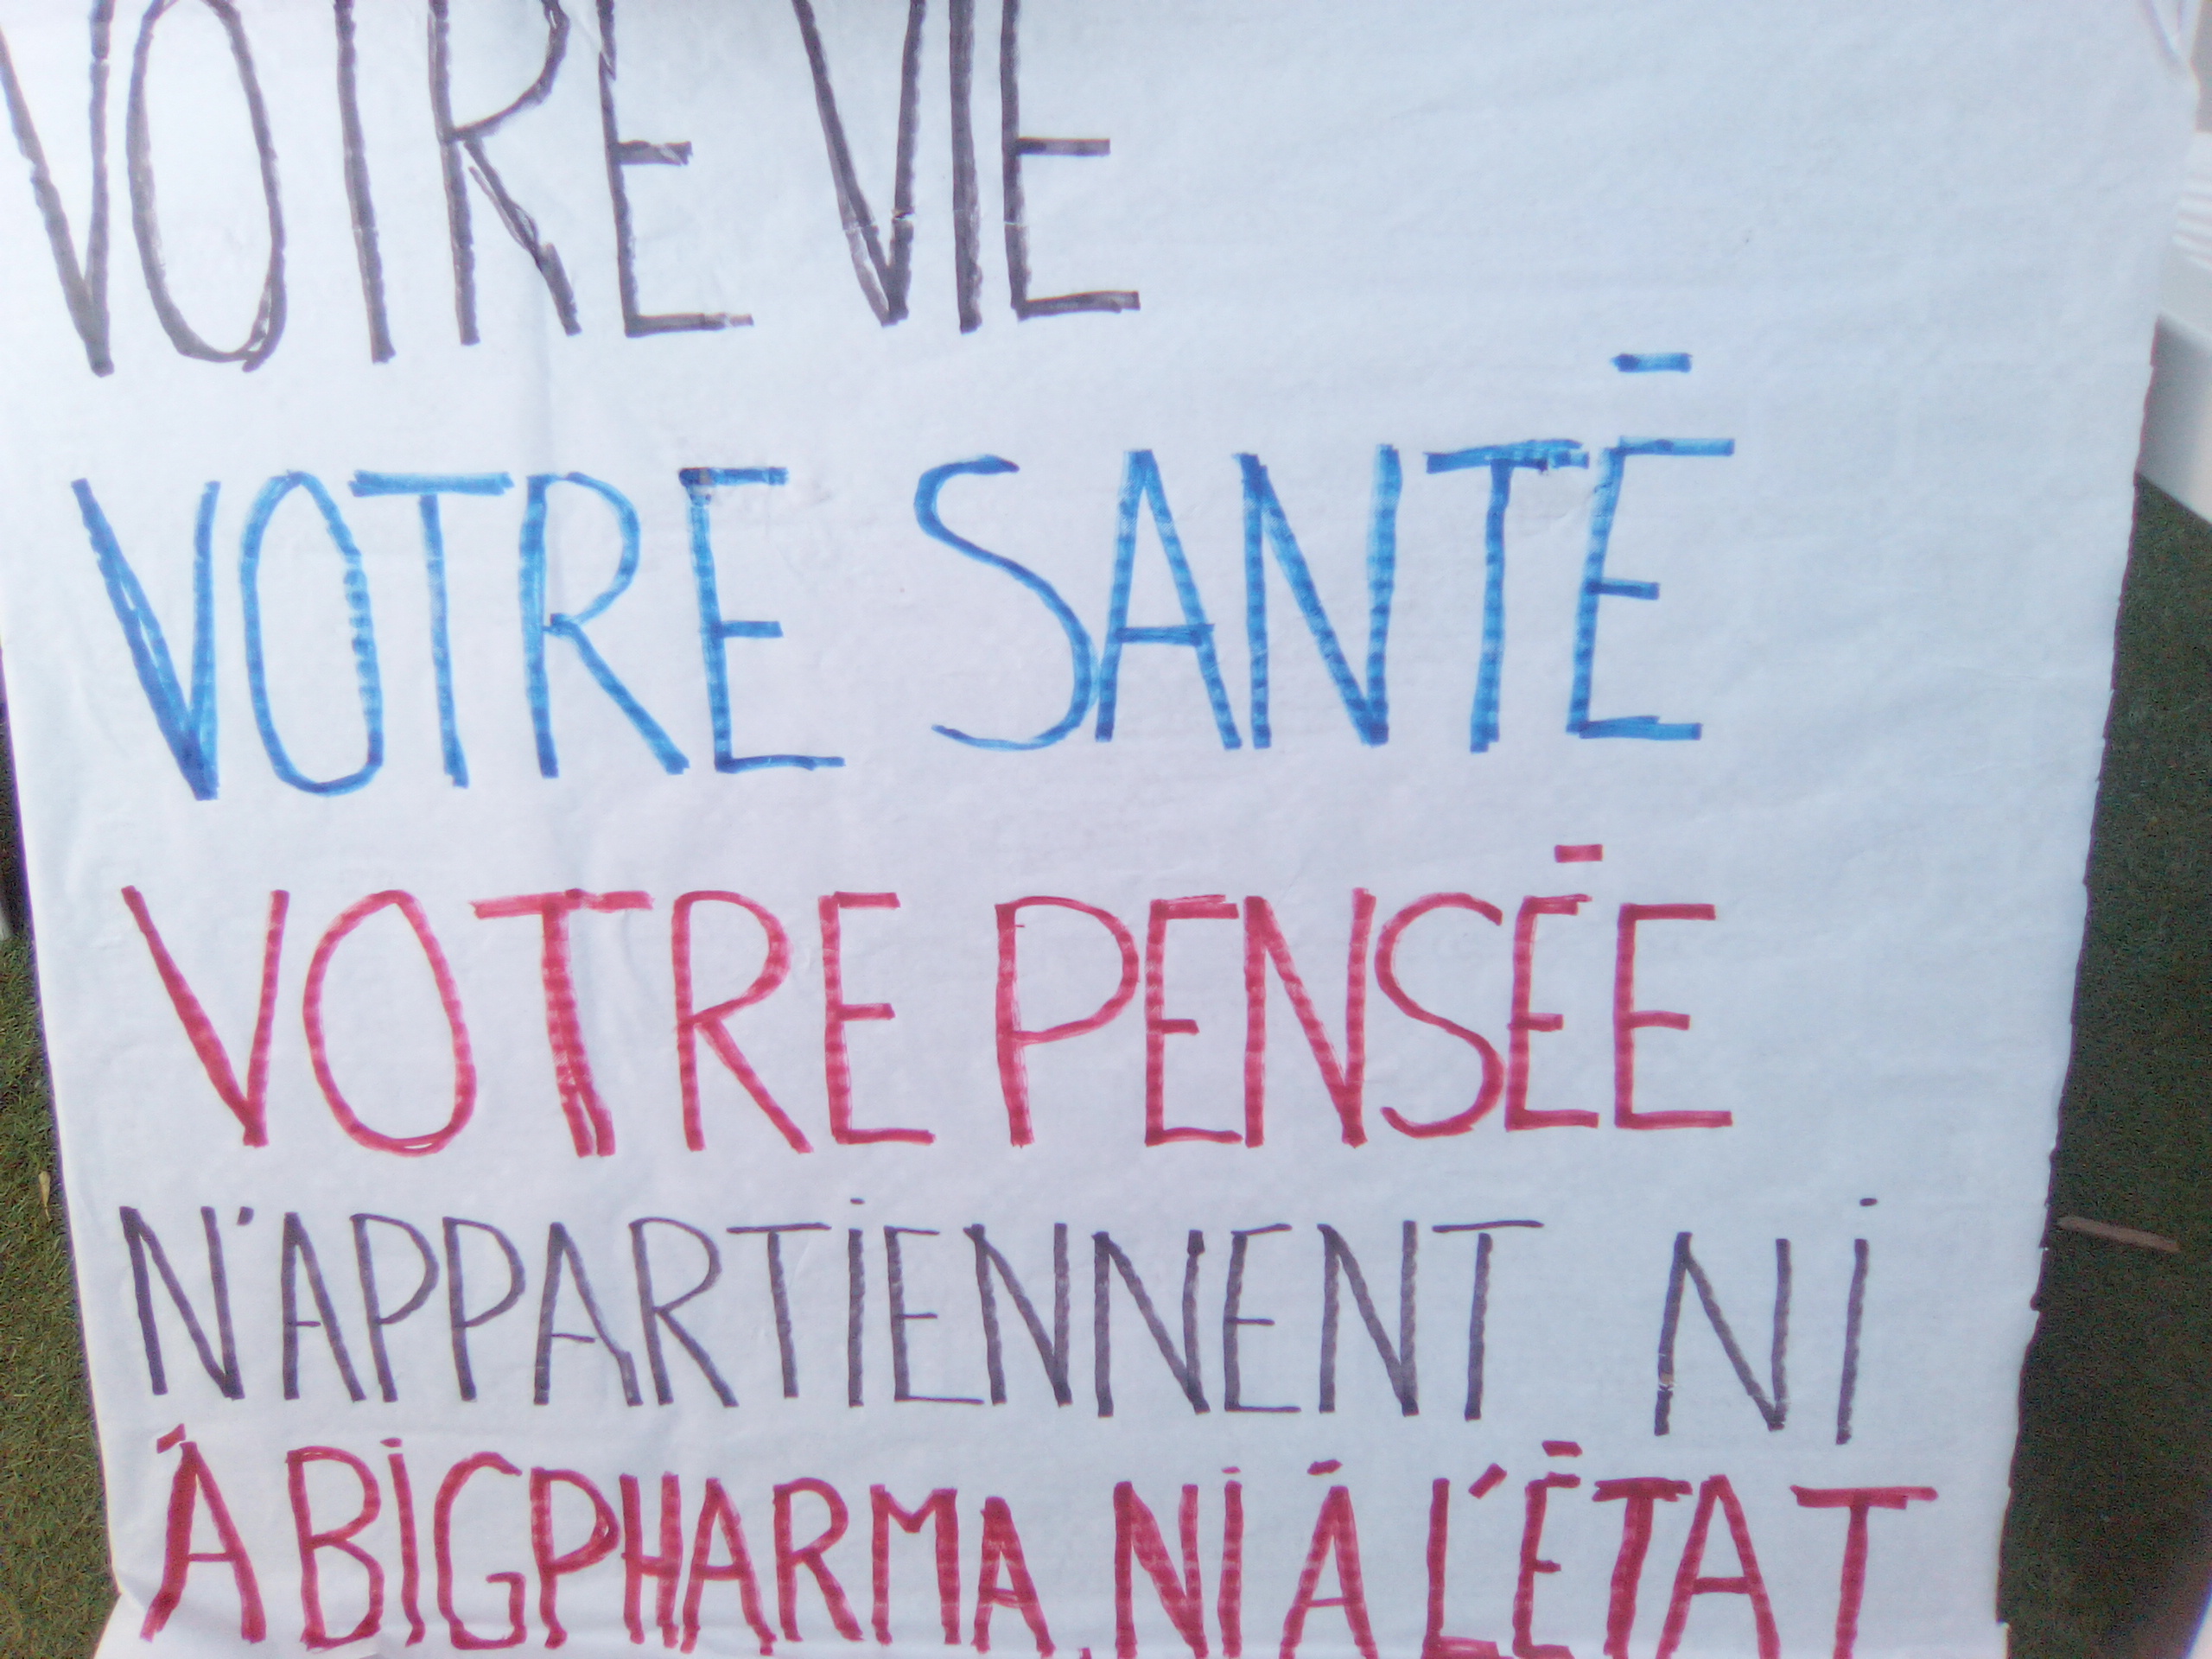 VOTRE VIE
VOTRE SANTÉ
VOTRE PENSÉE
N'APPARTIENNENT NI
À BIGPHARMA, NI À L'ÉTAT